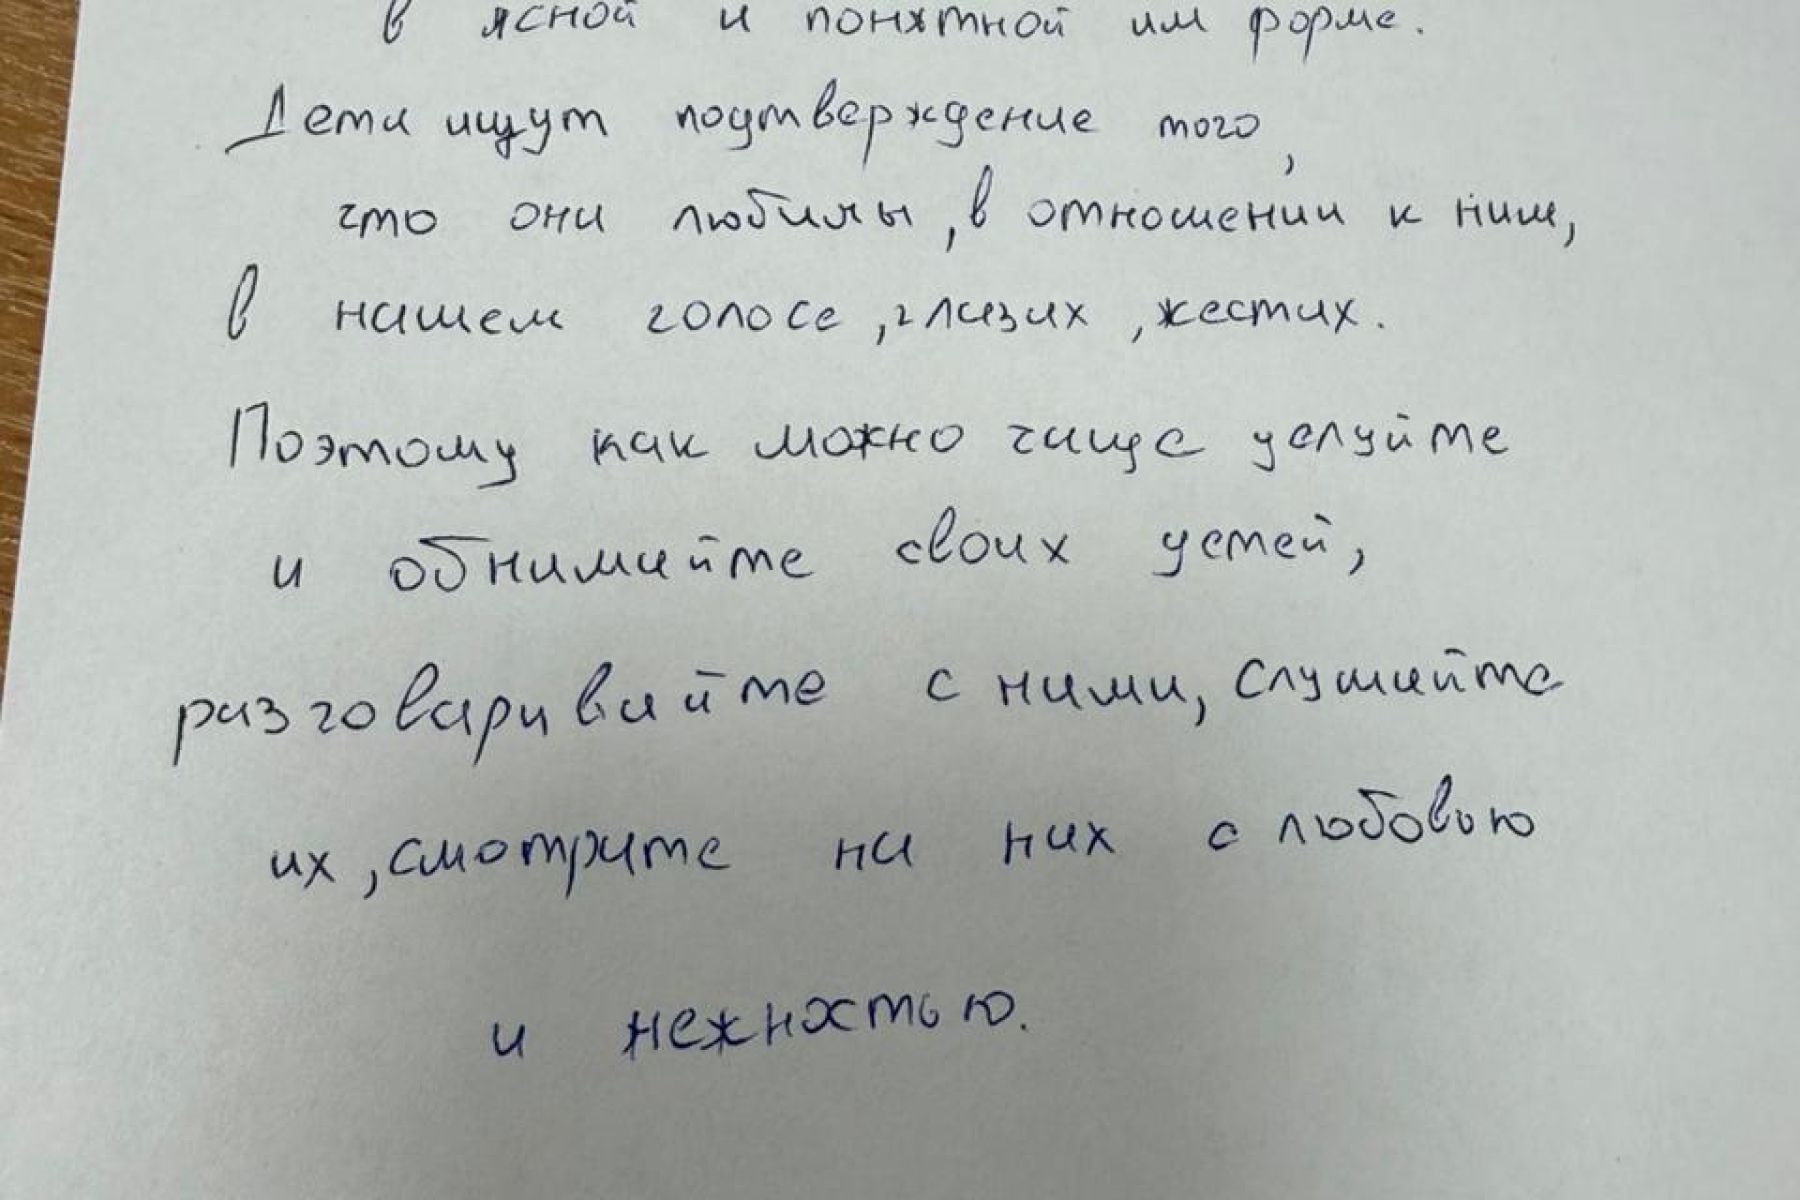 в ясной и понятной им форме.
Дети ищут подтверждение того,
что они любимы, в отношении к ним,
в нашем голосе, глазах, жестах.
Поэтому как можно чаще целуйте
и обнимайте своих детей,
разговаривайте с ними, слушайте
их, смотрите на них с любовью
и нежностью.